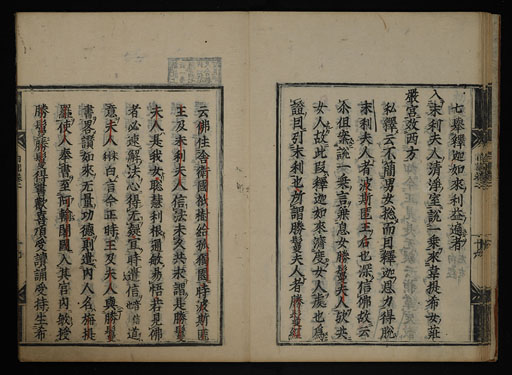 七舉釋迦如來利益適者
入末利夫人清淨室說一乘來韋提希女莊
嚴宮致西方
私釋云不簡男女捴而目釋迦恩力得脫
末利夫人者波斯匿王后也深信佛故云
說一乘言兼及女勝鬘夫人故共
女人故此段釋迦如來濟度女人處也爲
證目引末利也所謂勝鬘夫人者勝鬘經
云佛住舍衛國祇樹給孤獨園時波斯匿
王及末利夫人信法未久共相謂是勝鬘
夫人是我女聰慧利根通敏易悟若見佛
者必速解法心得无疑宜時遣信發其道
意夫人白言今正是時王及夫人與勝鬘
書略讚如來无量功德則遣内人名栴提
羅使人奉書至阿輸闍國入其宮内敬授
勝鬘勝鬘得書歡喜頂受讀誦受持生希